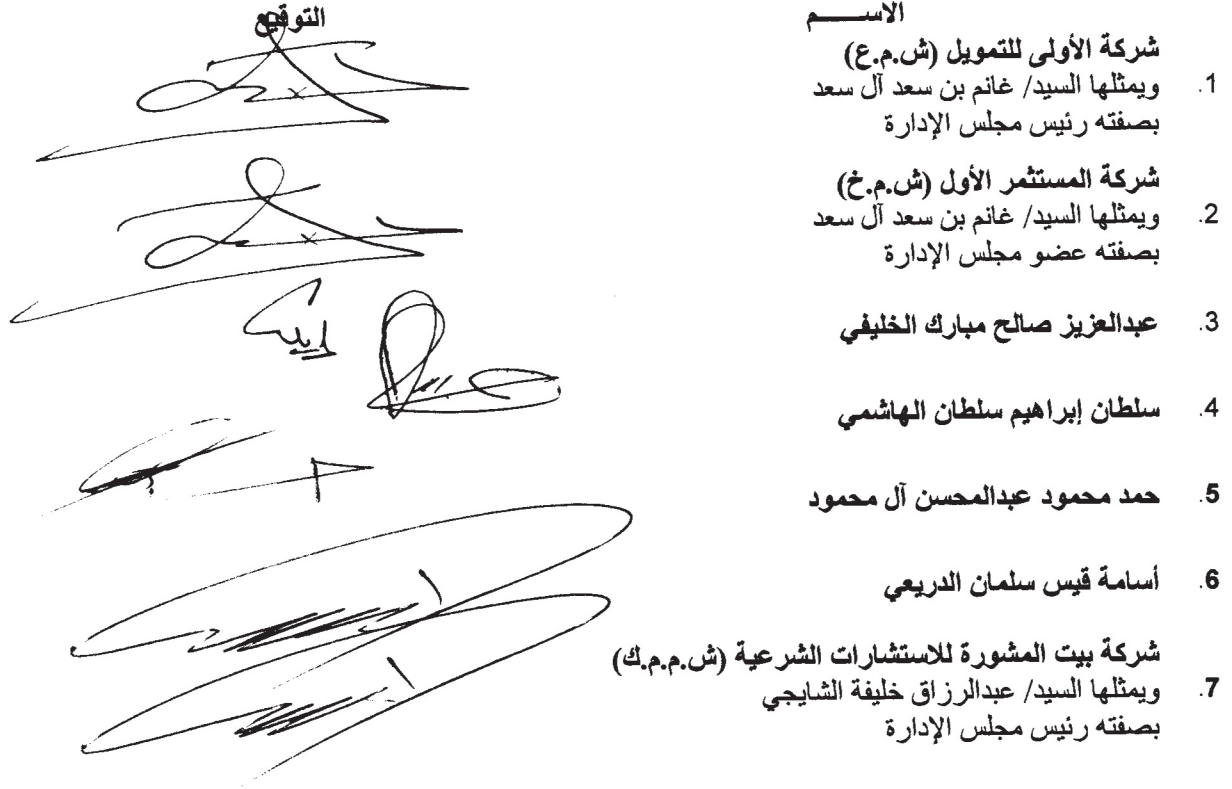 الاســـــم التوقيع
شركة الأولى للتمويل (ش.م.ع)
1. ويمثلها السيد/ غانم بن سعد آل سعد
بصفته رئيس مجلس الإدارة
شركة المستثمر الأول (ش.م.خ)
2. ويمثلها السيد/ غانم بن سعد آل سعد
بصفته عضو مجلس الإدارة
3. عبدالعزيز صالح مبارك الخليفي
4. سلطان إبراهيم سلطان الهاشمي
5. حمد محمود عبدالمحسن آل محمود
6. أسامة قيس سلمان الدريعي
شركة بيت المشورة للاستشارات الشرعية (ش.م.م.ك)
7. ويمثلها السيد/ عبدالرزاق خليفة الشايجي
بصفته رئيس مجلس الإدارة